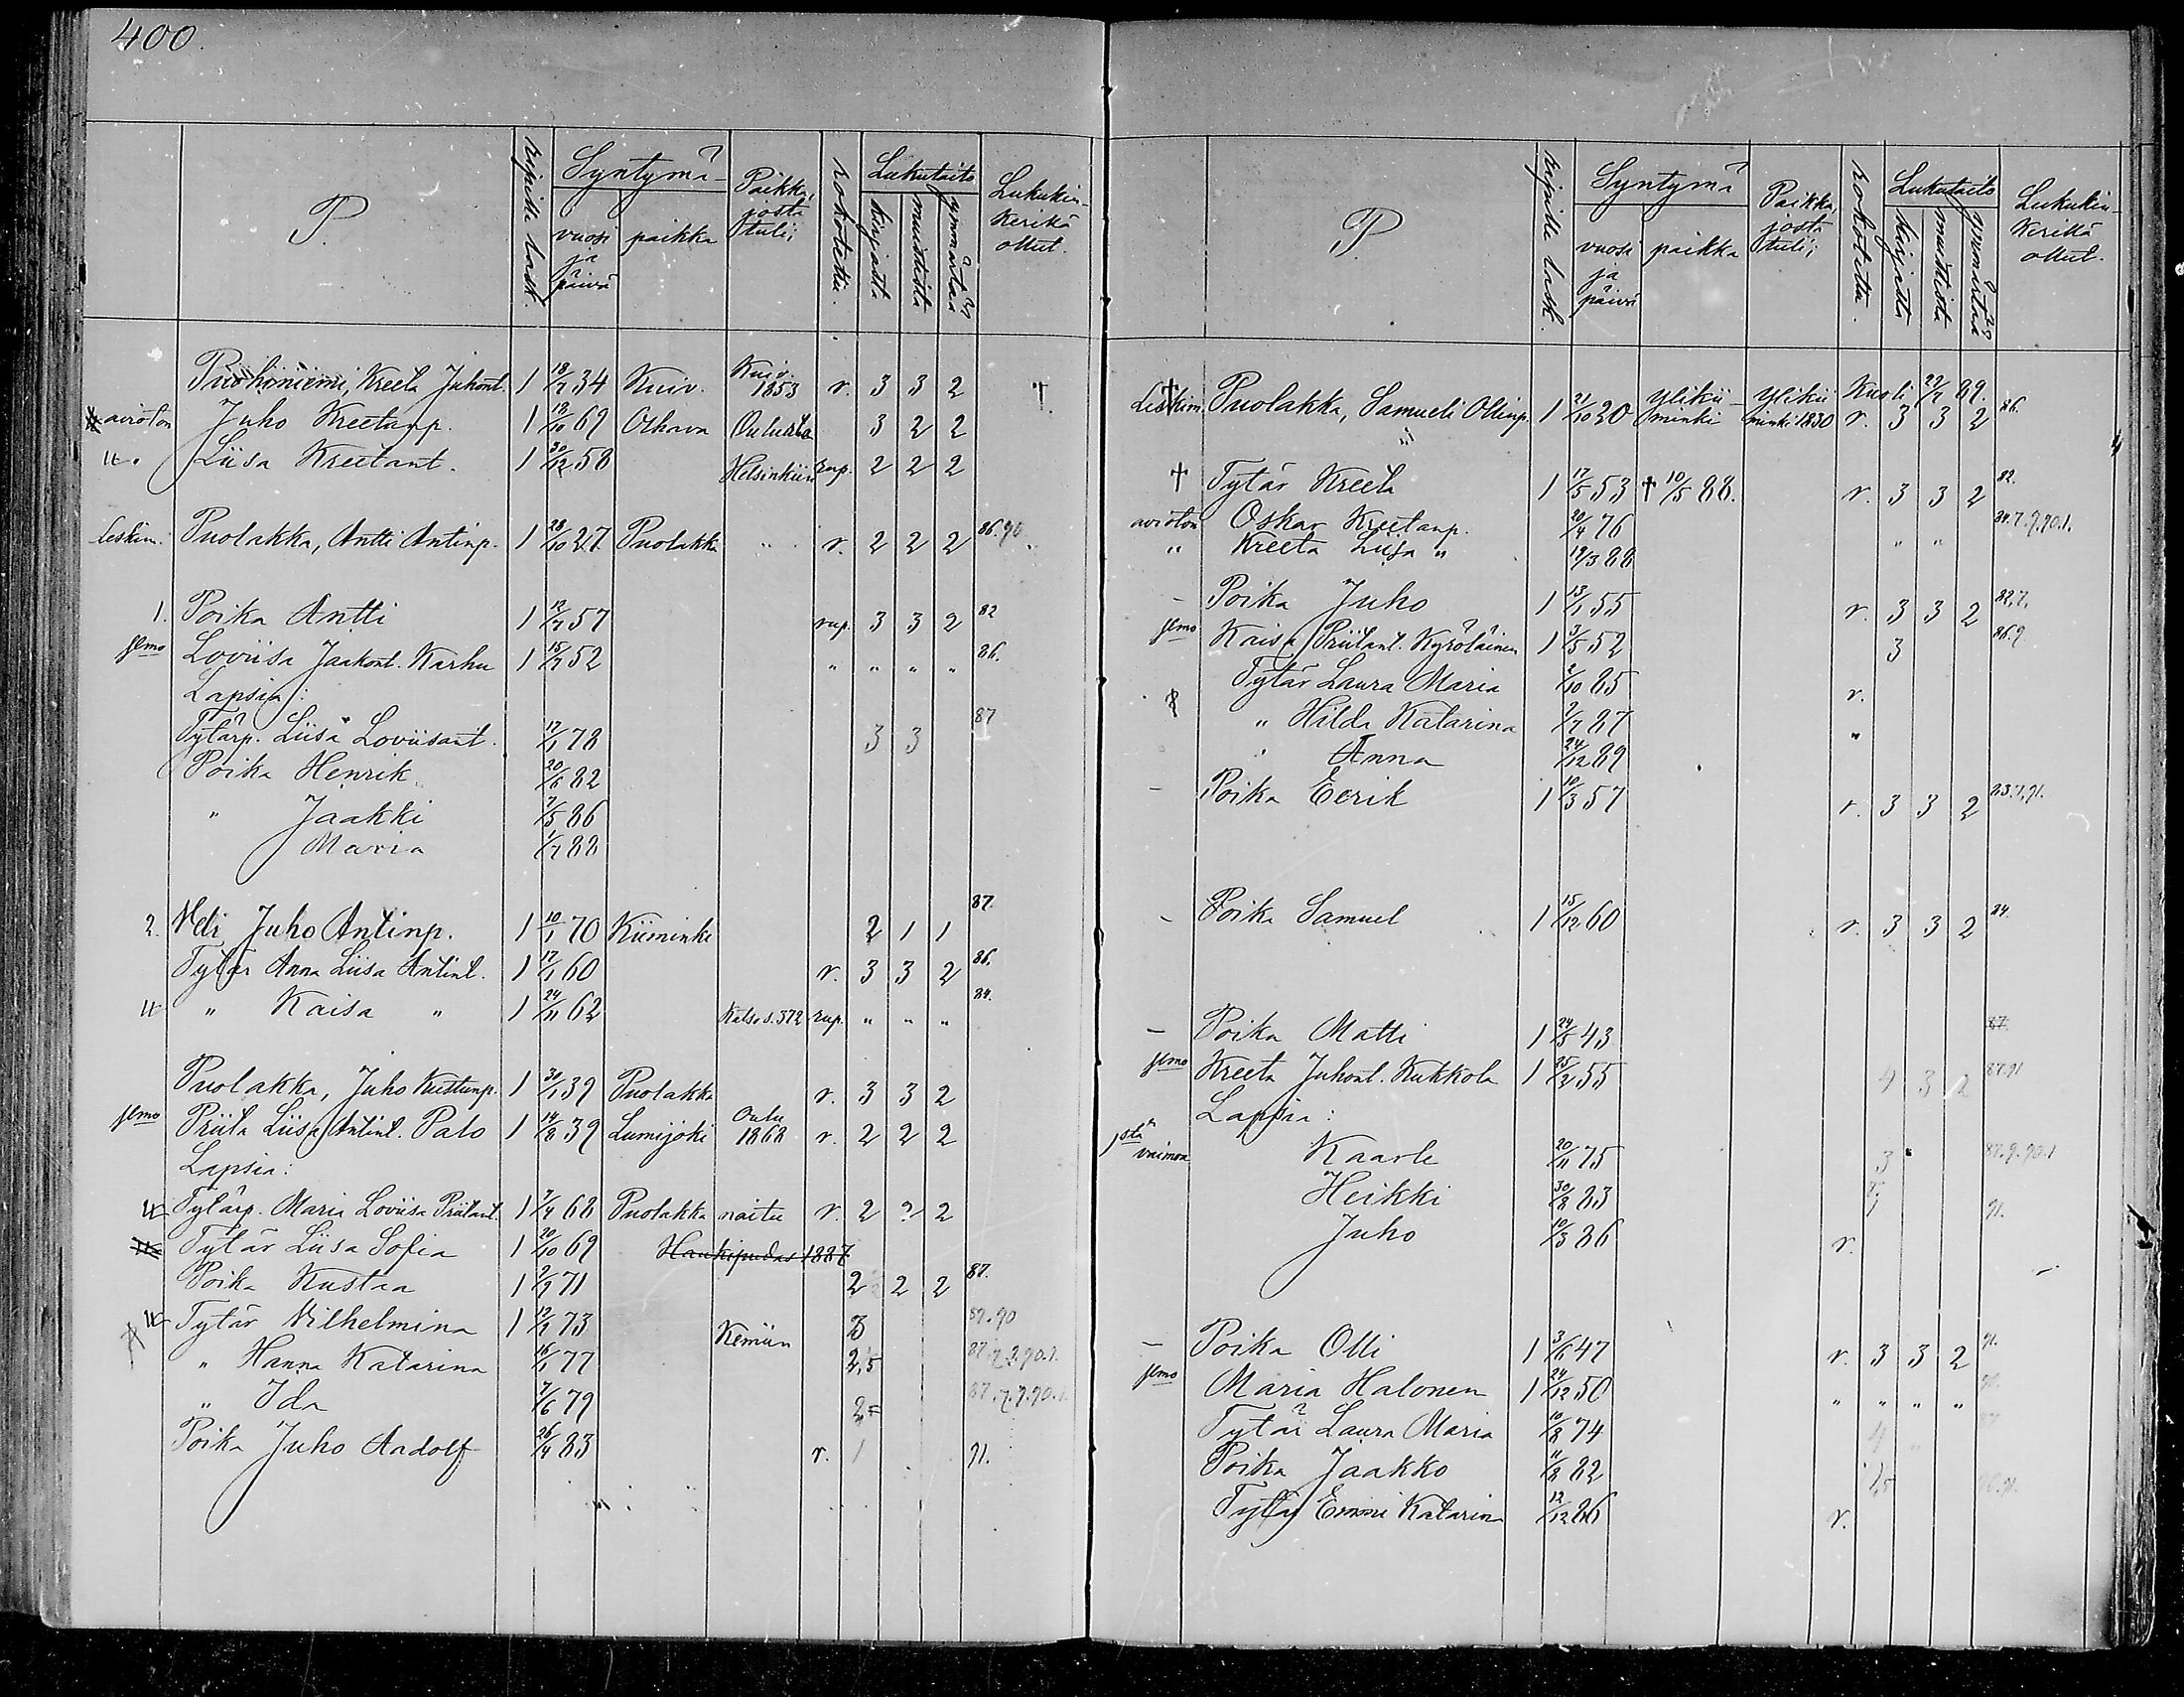 400.
P. Ripille lask. Syntymä- vuosi ja päivä paikka Paikka, josta tuli; rokotettu. Lukutaito kirjasta muistista ymmärtää Lukukinkerikä ollut.
Kreeta Juhont. 1 18/7 34 Kuiv. Kuiv. 1853 r. 3 3 2 †
avioton Juho Kreetanp. 1 18/10 69 Olhava 3 2 2
Liisa Kreetant. 1 30/12 58 Helsinkiin rup. 2 2 2
leskim. Puolakka, Antti Antinp. 1 28/10 27 Puolakka " r. 2 2 2 86.90
1. Poika Antti 1 12/7 57 rup. 3 3 2 82
jlmo Loviisa Jaakont. Karhu 1 15/7 52 " " " " 86.
Lapsia:
Tytärp. Liisa Loviisant. 17/1 78 3 3 87
Poika Henrik 20/6 82
" Jaakki 7/5 86
Maria 1/7 88
2. Veli Juho Antinp. 1 10/1 70 Kiiminki 2 1 1 87.
Tytär Anna Liisa Antint. 1 17/1 60 r. 3 3 2 86.
" Kaisa " 1 24/11 62 Katso s. 372 rup. " " " 84.
Puolakka, Juho Kustanp. 1 30/1 39 Puolakka r. 3 3 2
jlmo Priita Liisa Antint. Palo 1 14/8 39 Lumijoki Oulu 1868 r. 2 2 2
Lapsia:
Tytärp. Maria Loviisa Priitant. 1 7/4 68 Puolakka naitu r. 2 2 2
Tytär Liisa Sofia 1 20/10 69 Haukipudas 1887
Poika Kustaa 1 2/9 71 2 2 2 87.
Tytär Vilhelmina 1 12/7 73 Kemiin 3 87.90
" Hanna Katarina 16/1 77 2,5
" Ida 7/6 79 2
Poika Juho Aadolf 26/4 83 r. 1 91.
P. Ripille lask. Syntymä vuosi ja päivä paikka Paikka, josta tuli; rokotettu. Lukutaito kirjasta muistista ymmärtää Lukukinkerikä ollut.
Kuoli 22/7 89.
† Leskim. Puolakka, Samueli Ollinp. 1 21/10 20 Ylikiiminki Ylikiiminki 1830 r. 3 3 2 86.
† Tytär Kreeta 1 17/5 53 † 10/5 88. r. 3 3 2 82.
avioton Oskar Kreetanp. 20/4 76 " " 84.7.9.90.1.
" Kreeta Liisa " 19/3 88
- Poika Juho 1 13/1 55 r. 3 3 2 82,7,
jlmo Kaisa Priitant. Kyröläinen 1 3/5 52 3 86.9
Tytär Laura Maria 2/10 85 r.
" Hilda Katarina 2/7 87 "
" Anna 24/12 89
- Poika Eerik 1 10/3 57 r. 3 3 2 83.7,91.
- Poika Samuel 1 15/12 60 r. 3 3 2 84.
- Poika Matti 1 24/5 43 87.
jlmo Kreeta Juhont. Kukkola 1 25/2 55 4 3 2 87.91
Lapsia:
1sta vaimoa Kaarle 20/11 75 3 " 87.9.90.1
Heikki 30/8 83 91.
Juho 10/3 86 r.
- Poika Olli 1 3/6 47 r. 3 3 2 91.
jlmo Maria Halonen 1 24/12 50 " " " "
Tytär Laura Maria 10/8 74 4
Poika Jaakko 11/8 82
Tytär Emmi Katarina 12/12 86 r.